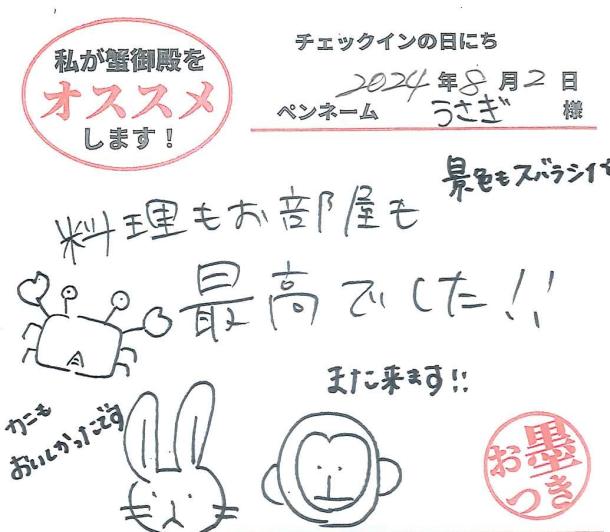 私が蟹御殿を
オススメ
します！
チェックインの日にち
2024年8月2日
ペンネーム うさぎ 様
景色もスバラシイ
料理もお部屋も
最高でした!!
また来ます!!
カニも
おいしかったです
お墨
つき